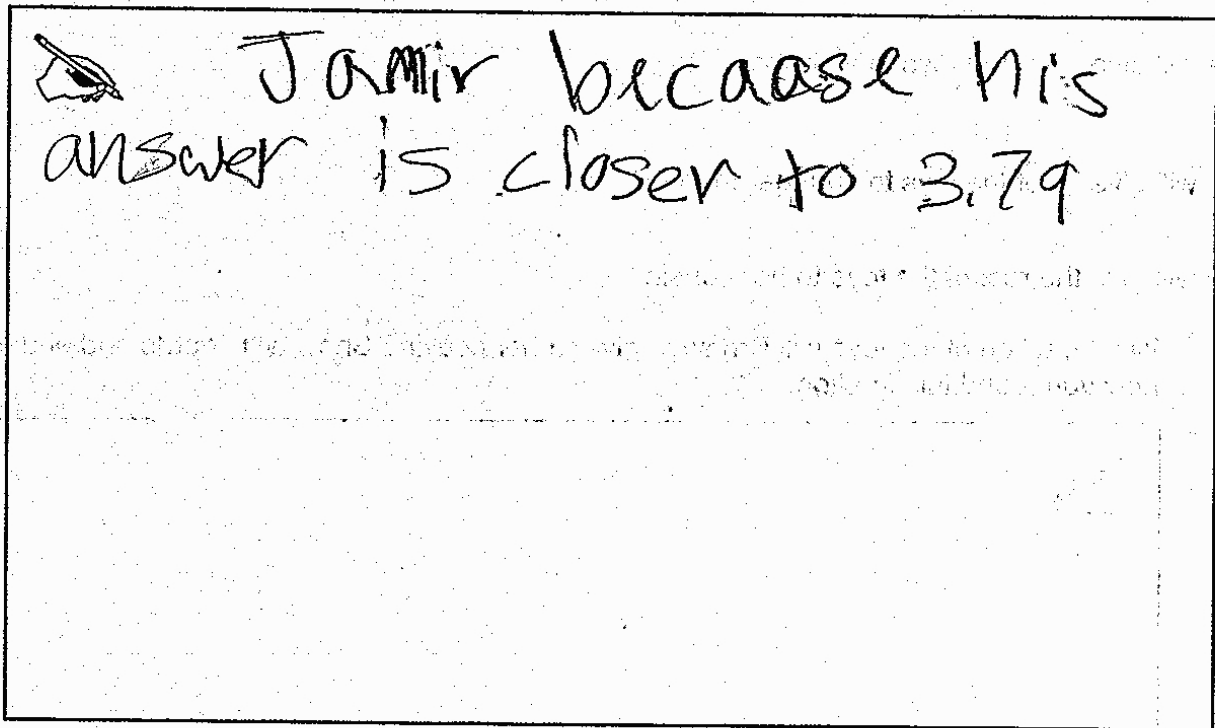 Jamir becaase his
answer is closer to 3.79